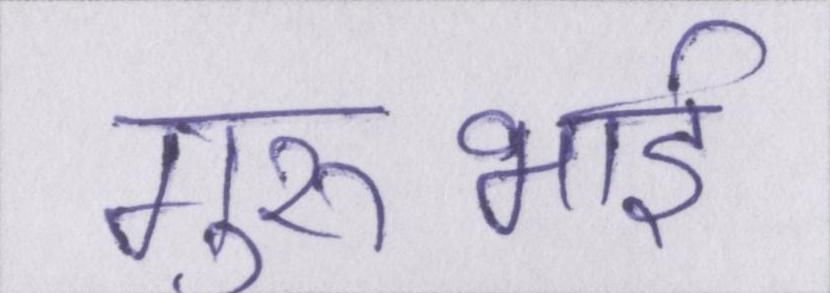 गुरु भाई